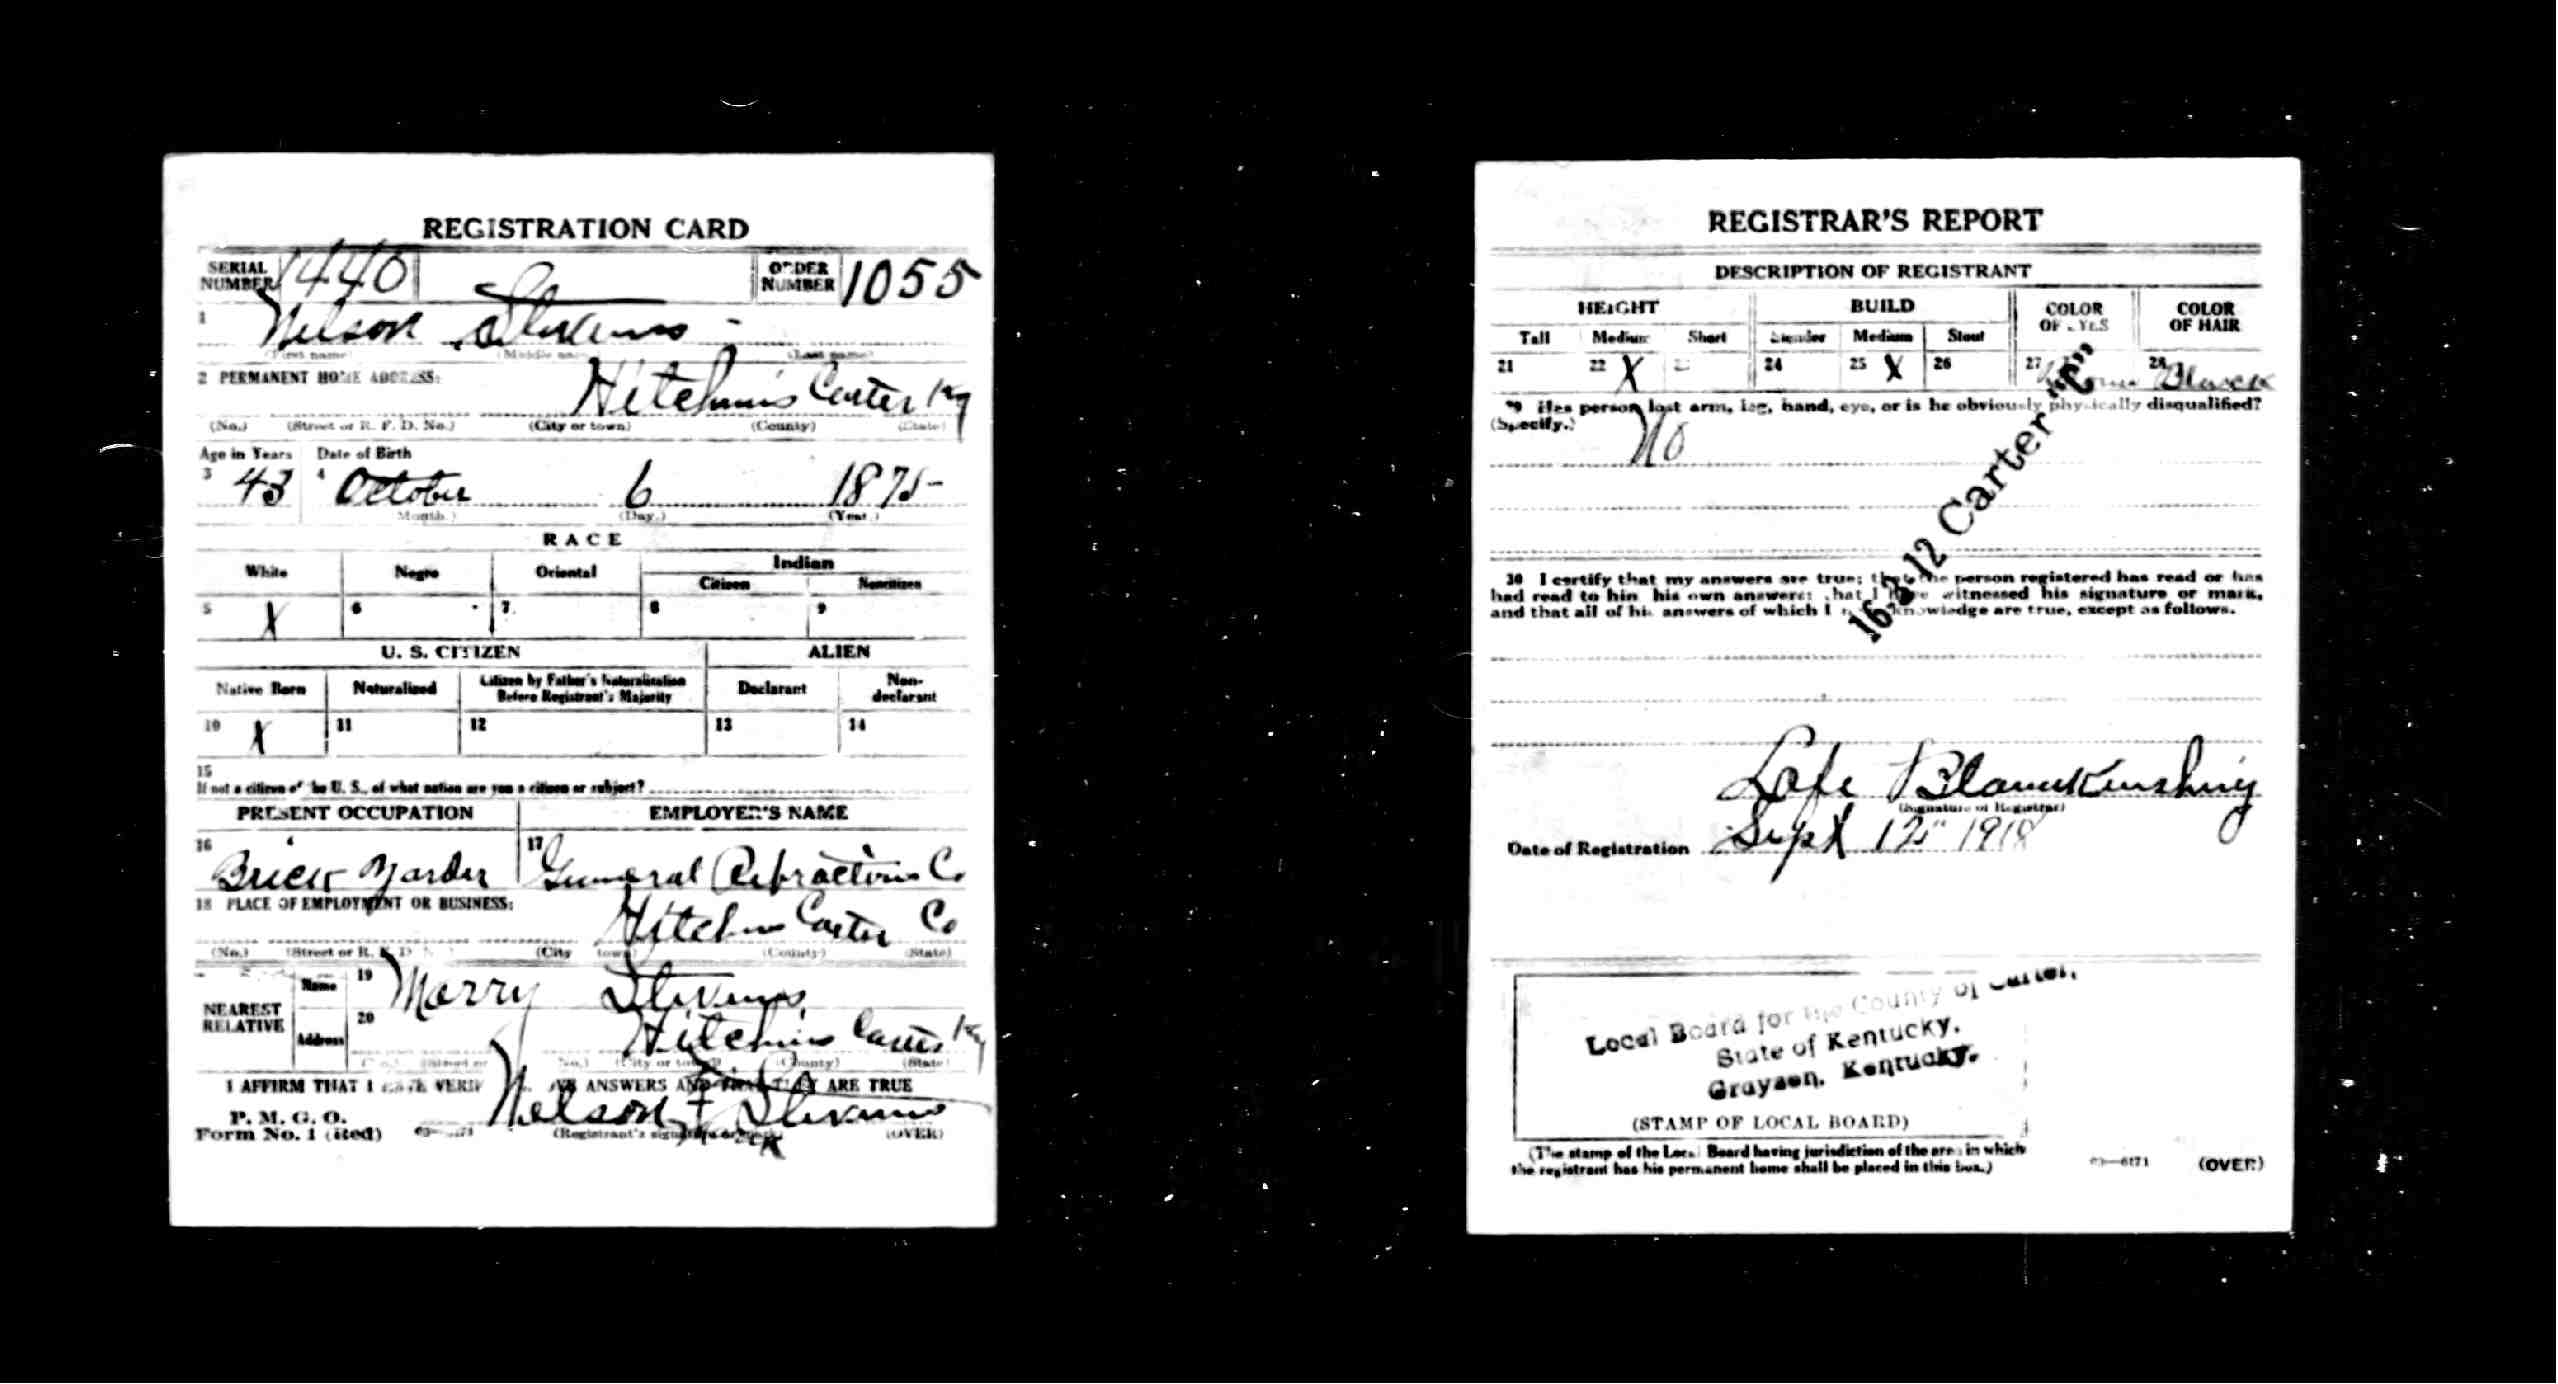 REGISTRATION CARD
SERIAL NUMBER 1440 ORDER NUMBER 1055
1 Nelson Stevens -
(First name) (Middle name) (Last name)
2 PERMANENT HOME ADDRESS:
Hitchins Carter Ky
(No.) (Street or R. F. D. No.) (City or town) (County) (State)
Age in Years Date of Birth
3 43 4 October 6 1875
(Month.) (Day.) (Year.)
RACE
White Negro Oriental Indian
Citizen Noncitizen
5 X 6 7 8 9
U. S. CITIZEN ALIEN
Native Born Naturalized Citizen by Father's Naturalization Before Registrant's Majority Declarant Non-declarant
10 X 11 12 13 14
15
If not a citizen of the U. S., of what nation are you a citizen or subject?
PRESENT OCCUPATION EMPLOYER'S NAME
16 Brick Yarder 17 General Refractories Co
18 PLACE OF EMPLOYMENT OR BUSINESS:
Hitchins Carter Co
(No.) (Street or R. F. D. No.) (City or town) (County) (State)
NEAREST RELATIVE
Name 19 Marry Stevens
Address 20 Hitchins Carter Ky
(No.) (Street or No.) (City or town) (County) (State)
I AFFIRM THAT I HAVE VERIFIED ABOVE ANSWERS AND THAT THEY ARE TRUE
P. M. G. O.
Form No. 1 (Red) 03-6171
Nelson X Stevens
his mark
(Registrant's signature or mark) (OVER)
REGISTRAR'S REPORT
DESCRIPTION OF REGISTRANT
HEIGHT BUILD COLOR OF EYES COLOR OF HAIR
Tall Medium Short Slender Medium Stout
21 22 X 23 24 25 X 26 27 Brown 28 Black
29 Has person lost arm, leg, hand, eye, or is he obviously physically disqualified?
(Specify.) No
16-2-12 Carter "C"
30 I certify that my answers are true; that the person registered has read or has
had read to him his own answers; that I have witnessed his signature or mark,
and that all of his answers of which I have knowledge are true, except as follows.
Lafe Blankenship
(Signature of Registrar)
Date of Registration Sept 12" 1918
Local Board for the County of Carter,
State of Kentucky,
Grayson, Kentucky.
(STAMP OF LOCAL BOARD)
(The stamp of the Local Board having jurisdiction of the area in which
the registrant has his permanent home shall be placed in this box.)
03-6171 (OVER)